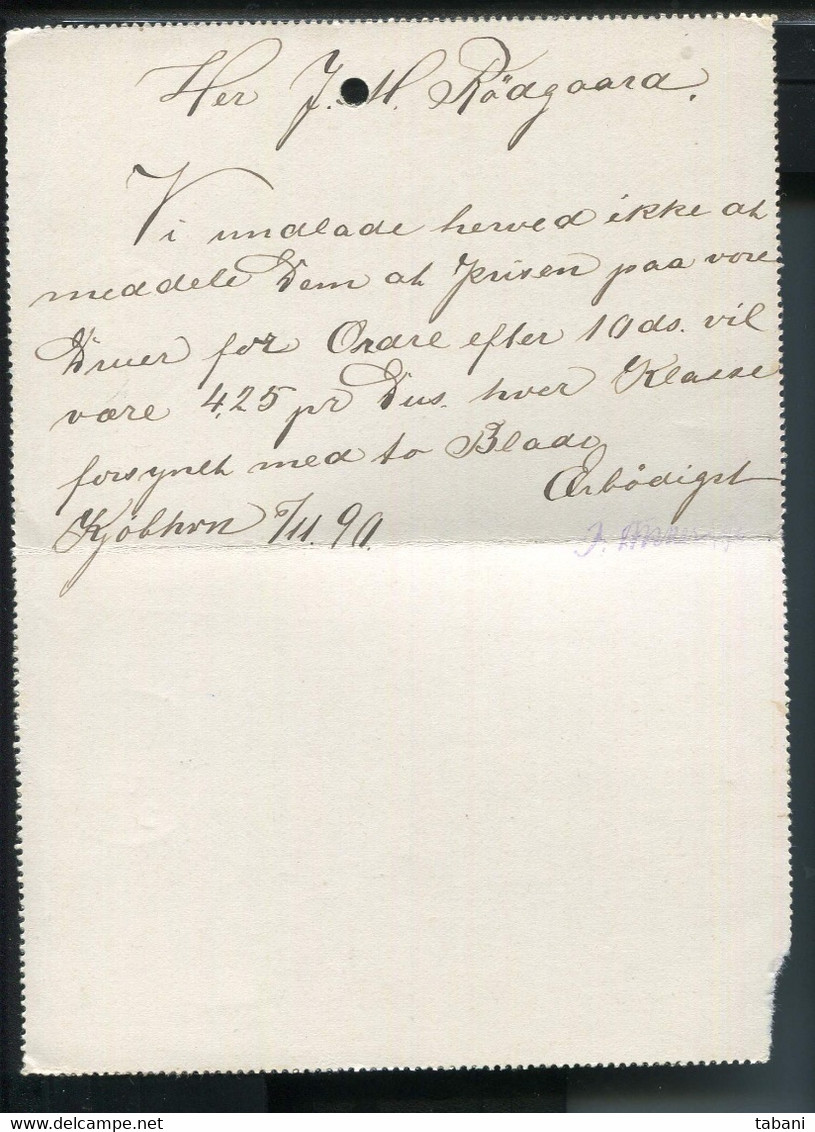 Her J. M. Rödgaard.
Vi undlade herved ikke at
meddele Dem at Prisen paa vore
Druer for Ordre efter 10 ds. vil
være 4,25 pr Dus. hver Klasse
forsynet med to Blade
Ærbödigst
Kjöbhvn /11. 90.
J.
tabani